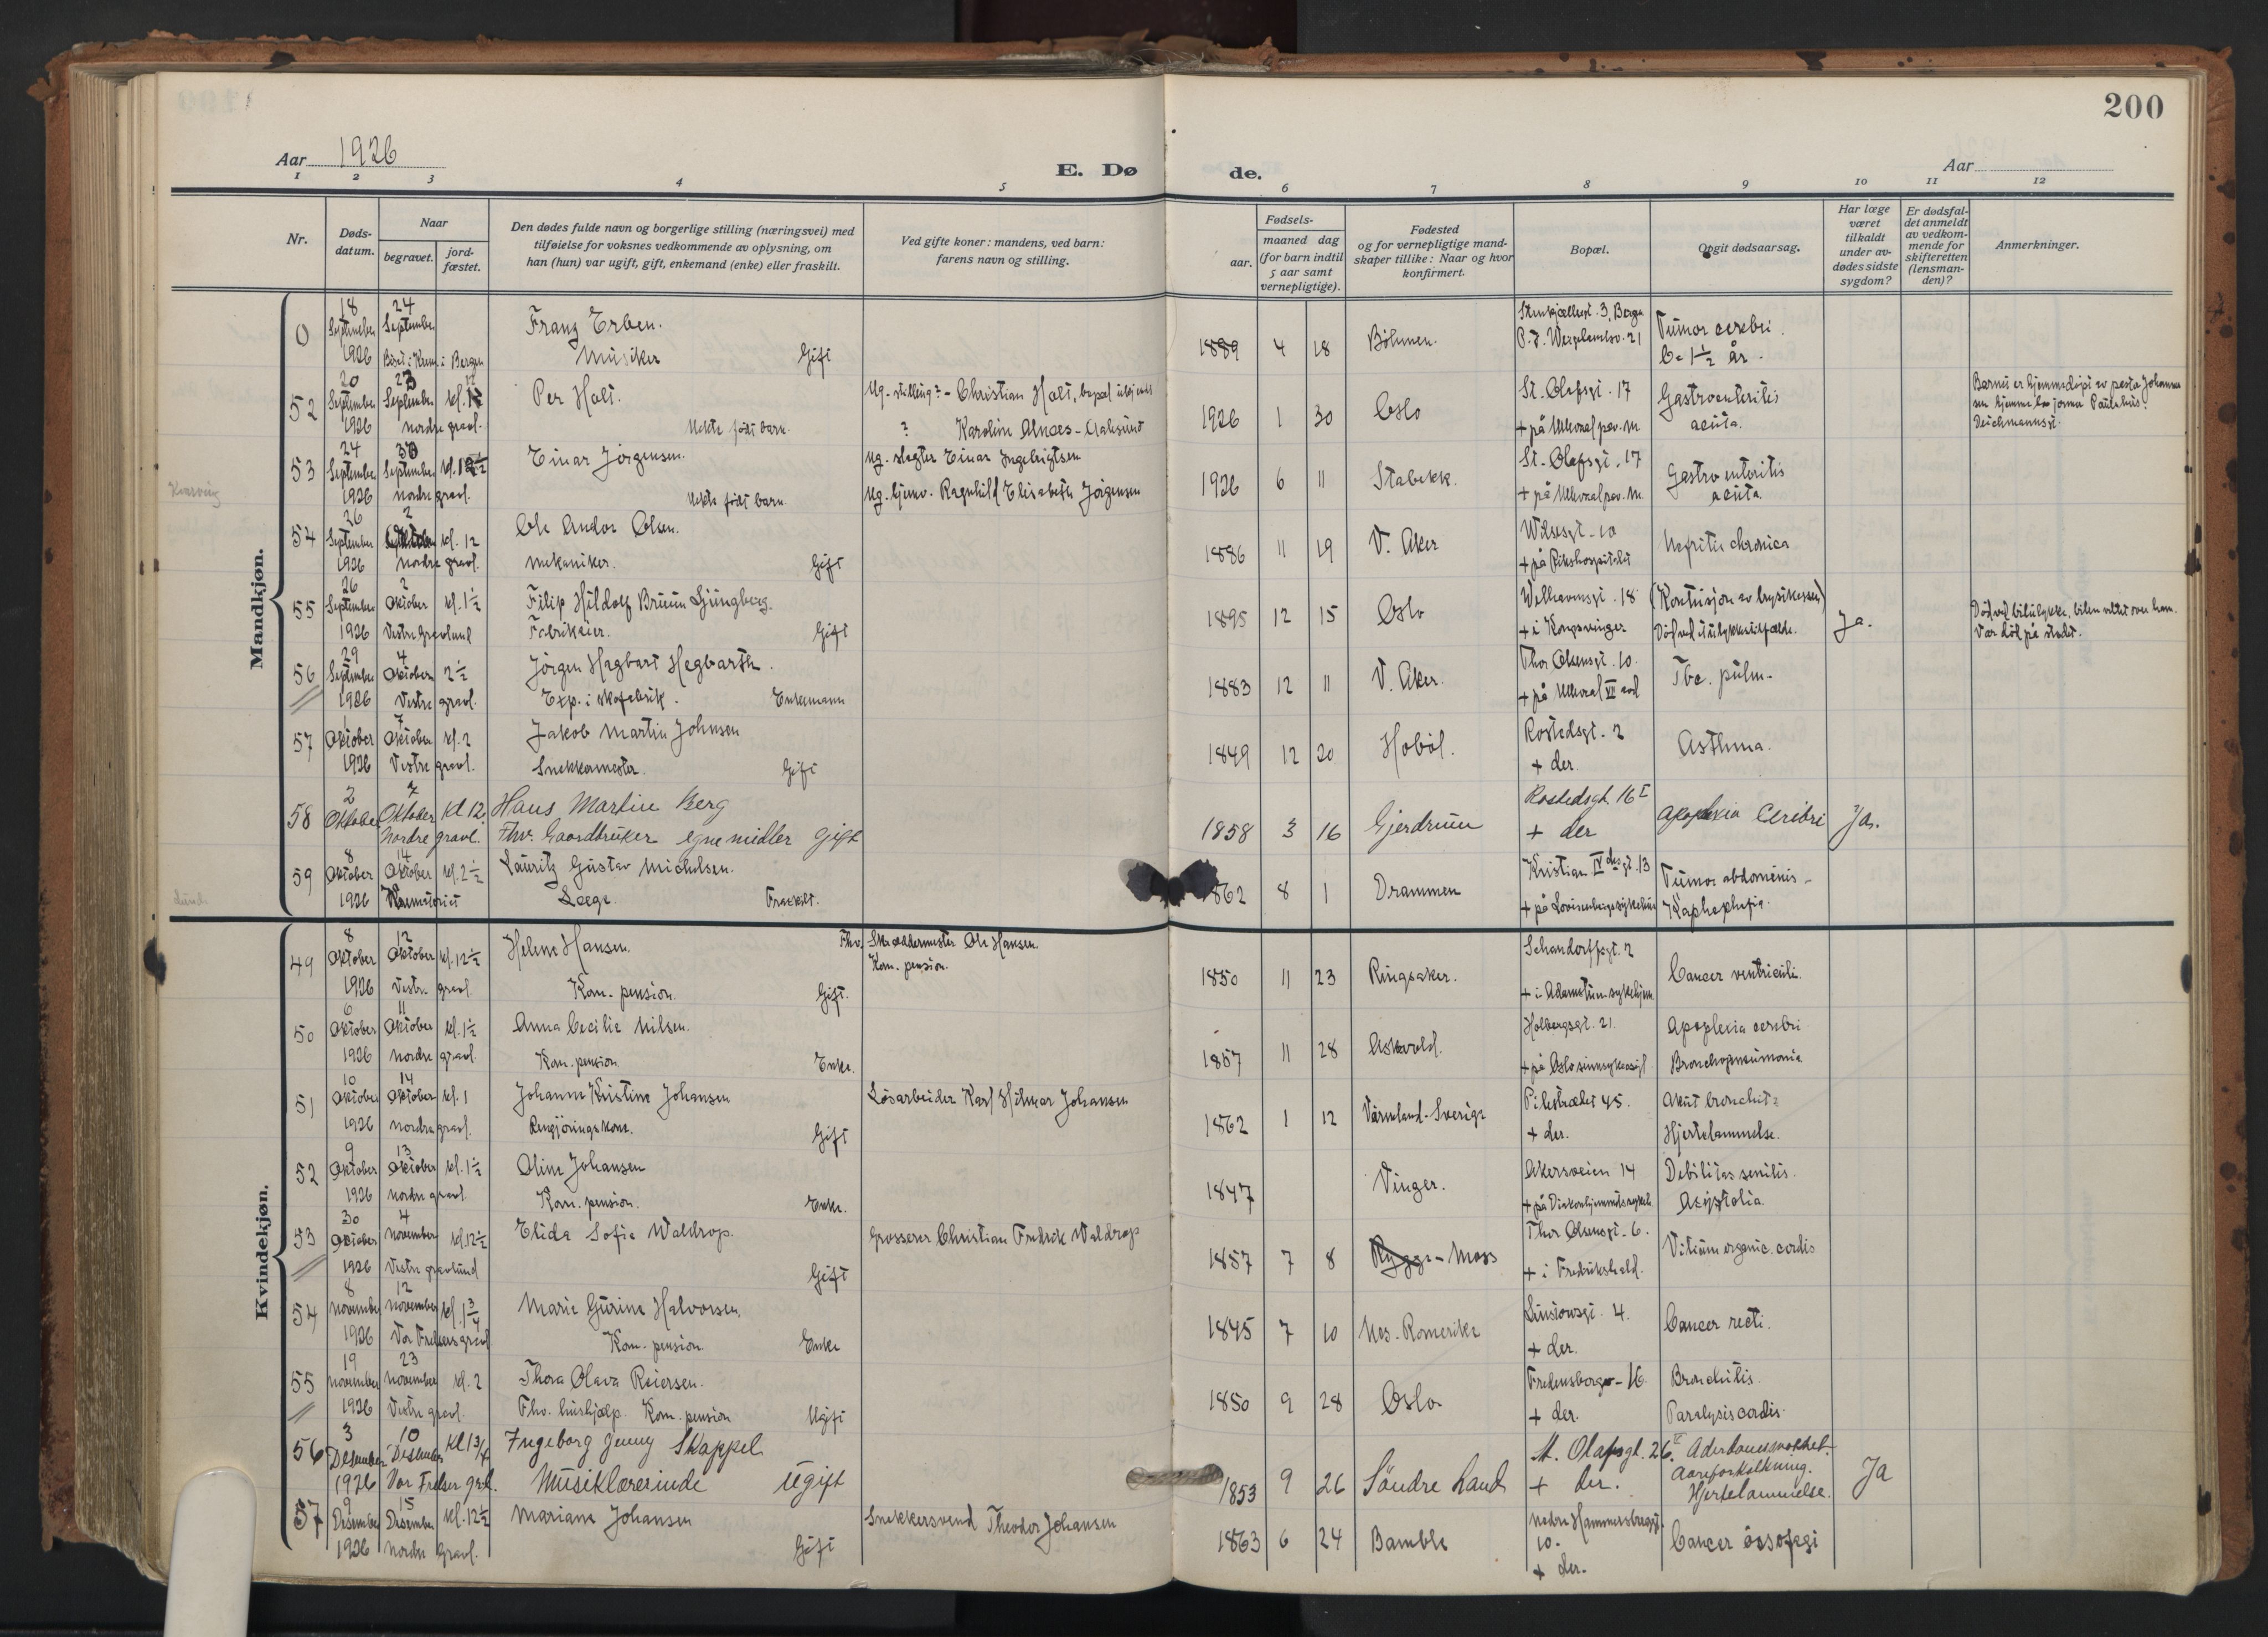 200
Aar 1926
E. Dø de.
Aar
1 2 3 4 5 6 7 8 9 10 11 12
Nr.
Døds-datum.
Naar
begravet.
jord-fæstet.
Den dødes fulde navn og borgerlige stilling (næringsvei) med
tilføielse for voksnes vedkommende av oplysning, om
han (hun) var ugift, gift, enkemand (enke) eller fraskilt.
Ved gifte koner: mandens, ved barn:
farens navn og stilling.
Fødsels-
aar.
maaned dag
(for barn indtil
5 aar samt
vernepligtige).
Fødested
og for vernepligtige mand-
skaper tillike: Naar og hvor
konfirmert.
Bopæl.
Opgit dødsaarsag.
Har læge
været
tilkaldt
under av-
dødes sidste
sygdom?
Er dødsfal-
det anmeldt
av vedkom-
mende for
skifteretten
(lensman-
den)?
Anmerkninger.
Mandkjøn.
0 18 September 1926 24 September i Bergen Franz Erben. Musiker Gift 1889 4 18 Böhmen. 3, Bergen 21 Tumor cerebri. 1½ år.
52 20 September 1926 23 September kl. nordre gravl. Per Holt. Uekte født barn. Ug. stilling? - Christian Holt, bopæl
? Karolin Alnæs - 1926 1 30 Oslo St. Olafsgt. 17 + på Ullevaal pav. M Gastroenteritis acuta.
Barnet er hjemmedøpt av
53 24 September 1926 30 September kl. nordre gravl. Einar Jörgensen. Uekte født barn. Ug. slagter Einar Ingebrigtsen
Ug. tjener. Ragnhild Elisabeth Jörgensen 1926 6 11 Stabekk. St. Olafsgt. 17 + på Ullevaal pav. M Gastroenteritis acuta
54 26 September 1926 2 Oktober kl. 12 nordre gravl. Ole Andor Olsen. mekaniker. Gift 1886 11 19 V. Aker Wilsesgt. 10 + på Rikshospitalet Nefritis chronica
55 26 September 1926 2 Oktober kl. 1½ Vestre Gravlund Filip Hildolf Bruun Ljungberg. Fabrikeier. Gift 1895 12 15 Oslo Welhavensgt. 18 + i Kongsvinger Død ved ulykkestilfælde. Ja.
Død ved bilulykke, bilen veltet over ham.
Var død på stedet.
56 29 September 1926 4 Oktober 2½ Vestre gravl. Jörgen Hagbart Hegbarth. Exp. i skofabrik. Enkemann 1883 12 11 V. Aker. Thor Olsensgt. 10. + på Ullevaal VI avd Tbc. pulm.
57 1 Oktober 1926 7 Oktober kl. 2 Vestre gravl. Jakob Martin Johnsen Snekkermester. Gift 1849 12 20 Hobøl. Rostedsgt. 2 + der. Asthma.
58 2 Oktober 7 Oktober Kl 12. Nordre gravl. Hans Martin Berg Fhv. Gaardbruker egne midler gift 1858 3 16 Gjerdrum Rostedsgt. 16 I + der apoplexia Ceribri Ja.
59 8 Oktober 1926 14 Oktober kl. 2½ Krematoriet Lauritz Gustav Michelsen. Læge. Fraskilt. 1862 8 1 Drammen Kristian IV des gt. 13 + på Lovisenbergs sykehus Tumor abdominis -
Kvindekjøn.
49 8 Oktober 1926 12 Oktober kl. 12½ Vestre gravl. Helene Hansen. Kom. pension. Gift. Fhv. Skræddermester Ole Hansen. Kom. pension. 1850 11 23 Ringsaker. Schandorffsgt. 2 + i Adamstuen sykehjem Cancer ventriculi.
50 6 Oktober 1926 11 Oktober kl. 1½ nordre gravl. Anna Cecilie Nilsen. Kom. pension. Enke. 1857 11 28 Askvold. Holbergsgt. 21. + på Oslo sinnsykeasyl Apoplexia cerebri Bronchopneumonie
51 10 Oktober 1926 14 Oktober kl. 1 nordre gravl. Johanne Kristine Johansen Rengjøringskone. Gift Løsarbeider Karl Hilmar Johansen 1862 1 12 Värmland - Sverige Pilestrædet 45. + der. Akut bronchit Hjertelammelse.
52 9 Oktober 1926 13 Oktober kl. 1½ nordre gravl. Oline Johansen Kom. pension. Enke. 1847 Vinger. Akersveien 14 + på Diakonhjemmets sykeh. Debilitas senilis. Asystolia.
53 30 Oktober 1926 4 November kl. 12½ Vestre gravlund Elida Sofie Waldrop. Gift Grosserer Christian Fredrik Waldrop 1857 7 8 Rygge - Moss Thor Olsensgt. 6. + i Fredrikshald. Vitium organic. cordis
54 8 November 1926 12 November kl. 1¾ Vor Frelsers gravl. Marie Gurine Halvorsen. Kom. pension. Enke 1845 7 10 Nes - Romerike 4. + der. Cancer recti.
55 19 November 1926 23 November kl. 2 Vestre gravl. Thora Olava Reiersen. Fhv. hushjælp. Kom. pension Ugift 1850 9 28 Oslo Fredensborg 16 + der. Bronchitis. Paralysis cordis.
56 3 Desember 1926 10 Desember Kl 1¾ Vor Frelser grl. Ingeborg Jenny Skappel. Musiklærerinde Ugift 1853 9 26 Söndre Land St. Olafsgt. 26. + der. Aareforkalkning. Hjertelammelse. Ja
57 9 Desember 1926 15 Desember kl. 12½ nordre Gravl. Mariane Johansen Gift Snekkersvend Theodor Johansen 1863 6 24 Bamble Nedre Hammersborggt. 10. + der. Cancer össofagi